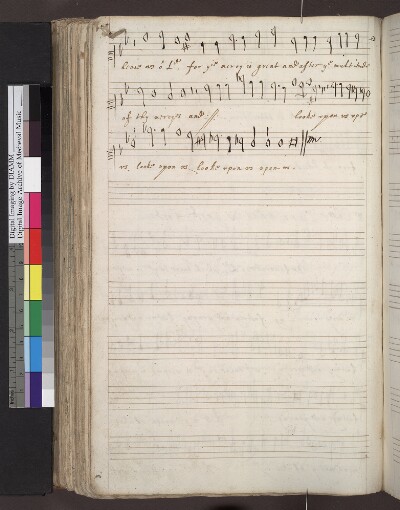 heare us ô L^d. for y^r mercy is great and after y^e multitude
of thy mercys and looke upon us upō
us, looke upon us looke upon us upon us.
Digital Imaging by DIAMM
Digital Image Archive of Medieval Music